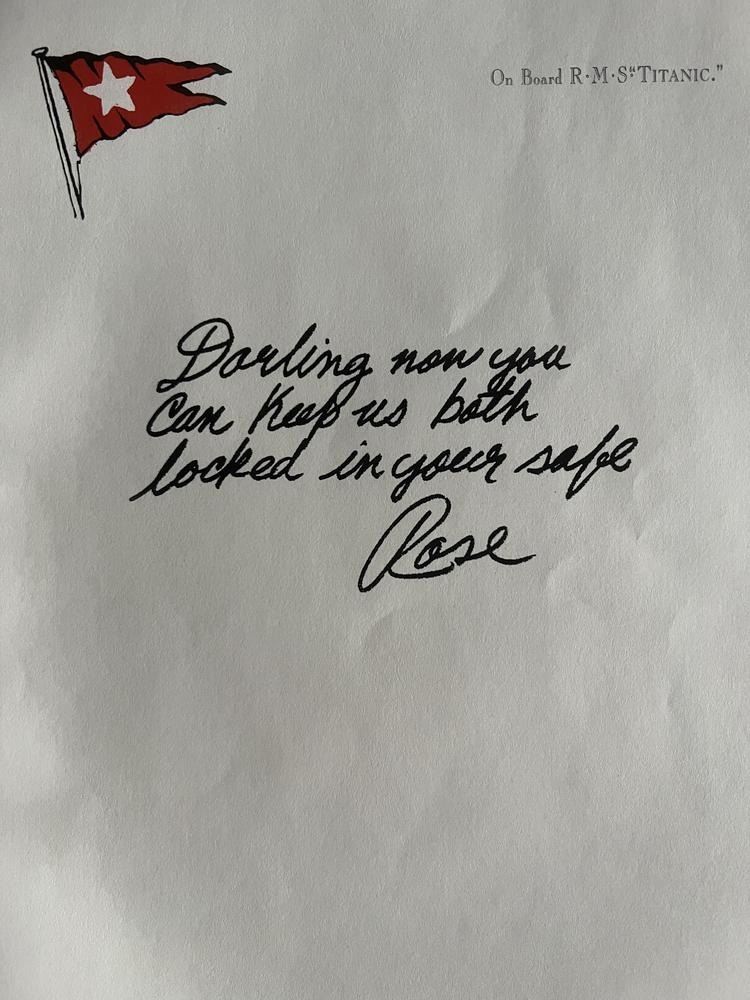 On Board R·M·S "TITANIC."
Darling now you
can keep us both
locked in your safe
Rose